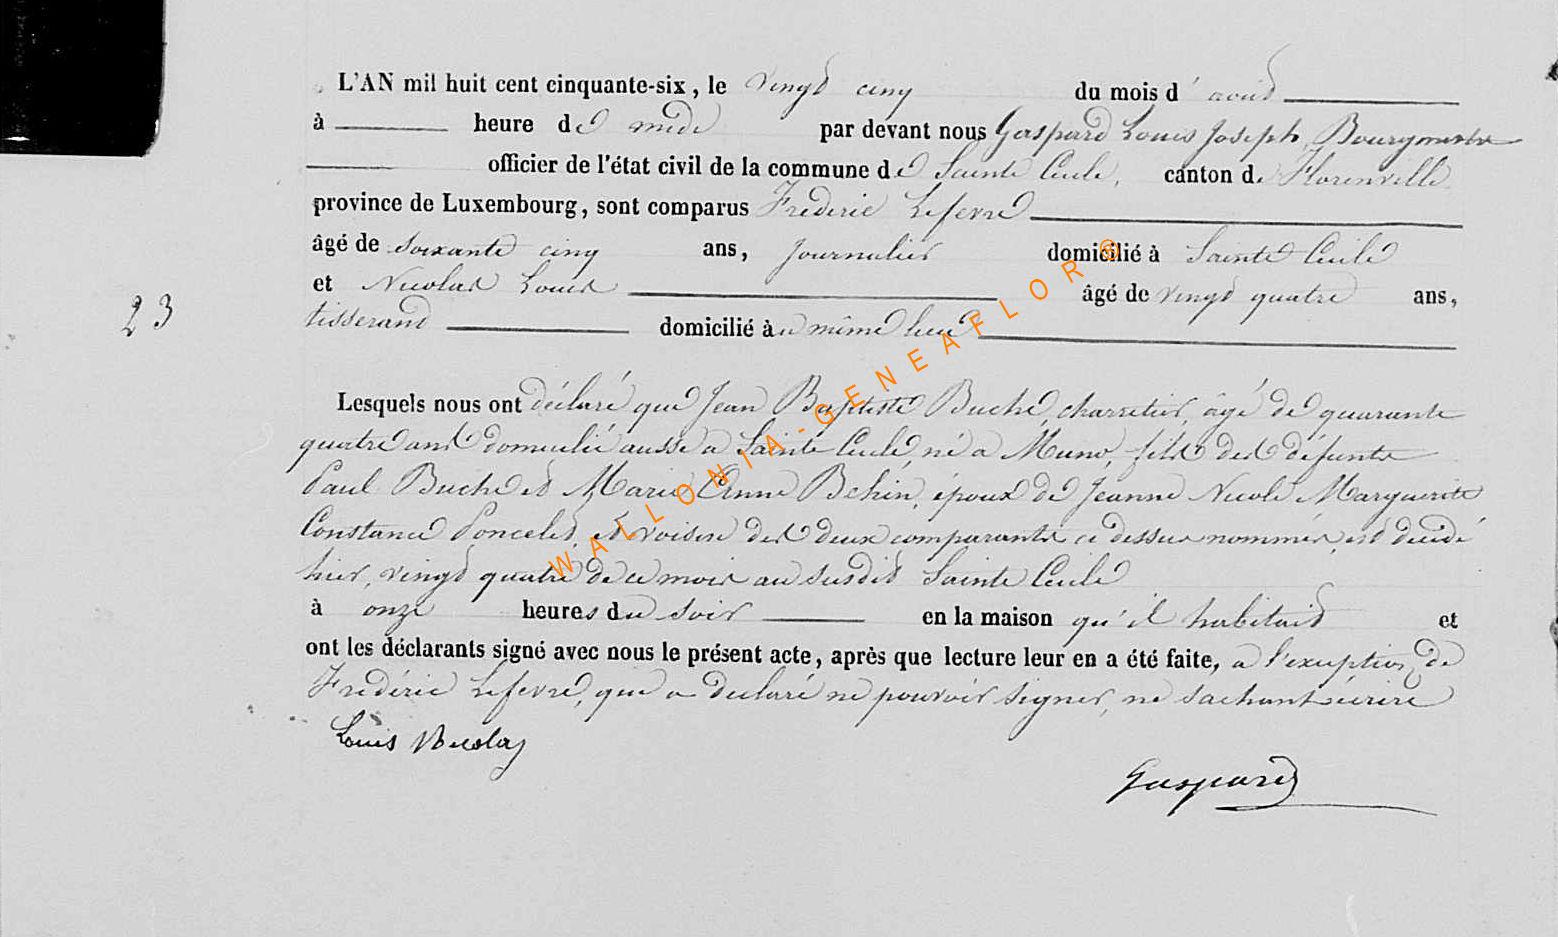 L'AN mil huit cent cinquante-six, le vingt cinq du mois d'août
à heure de midi par devant nous Gaspard Louis Joseph, Bourgmestre
officier de l'état civil de la commune de Sainte Cécile, canton de Florenville
province de Luxembourg, sont comparus Frédéric Lefevre
âgé de soixante cinq ans, journalier domicilié à Sainte Cécile
et Nicolas Louis âgé de vingt quatre ans,
23
tisserand domicilié au même lieu
Lesquels nous ont déclaré que Jean Baptiste Buché, charretier, âgé de quarante
quatre ans domicilié aussi a Sainte Cécile, né a Muno, fils des défunts
Paul Buché et Marie Anne Bchin, époux de Jeanne Nicole Marguerite
Constance Poncelet, et voisin des deux comparants ci dessus nommés, est décédé
hier, vingt quatre de ce mois au susdit Sainte Cécile
à onze heures du soir en la maison qu'il habitait et
ont les déclarants signé avec nous le présent acte, après que lecture leur en a été faite, a l'exception de
Frédéric Lefevre, qui a déclaré ne pouvoir signer, ne sachant écrire
Louis Nicolas
Gaspard
WALLONIA-GENEAFLOR®